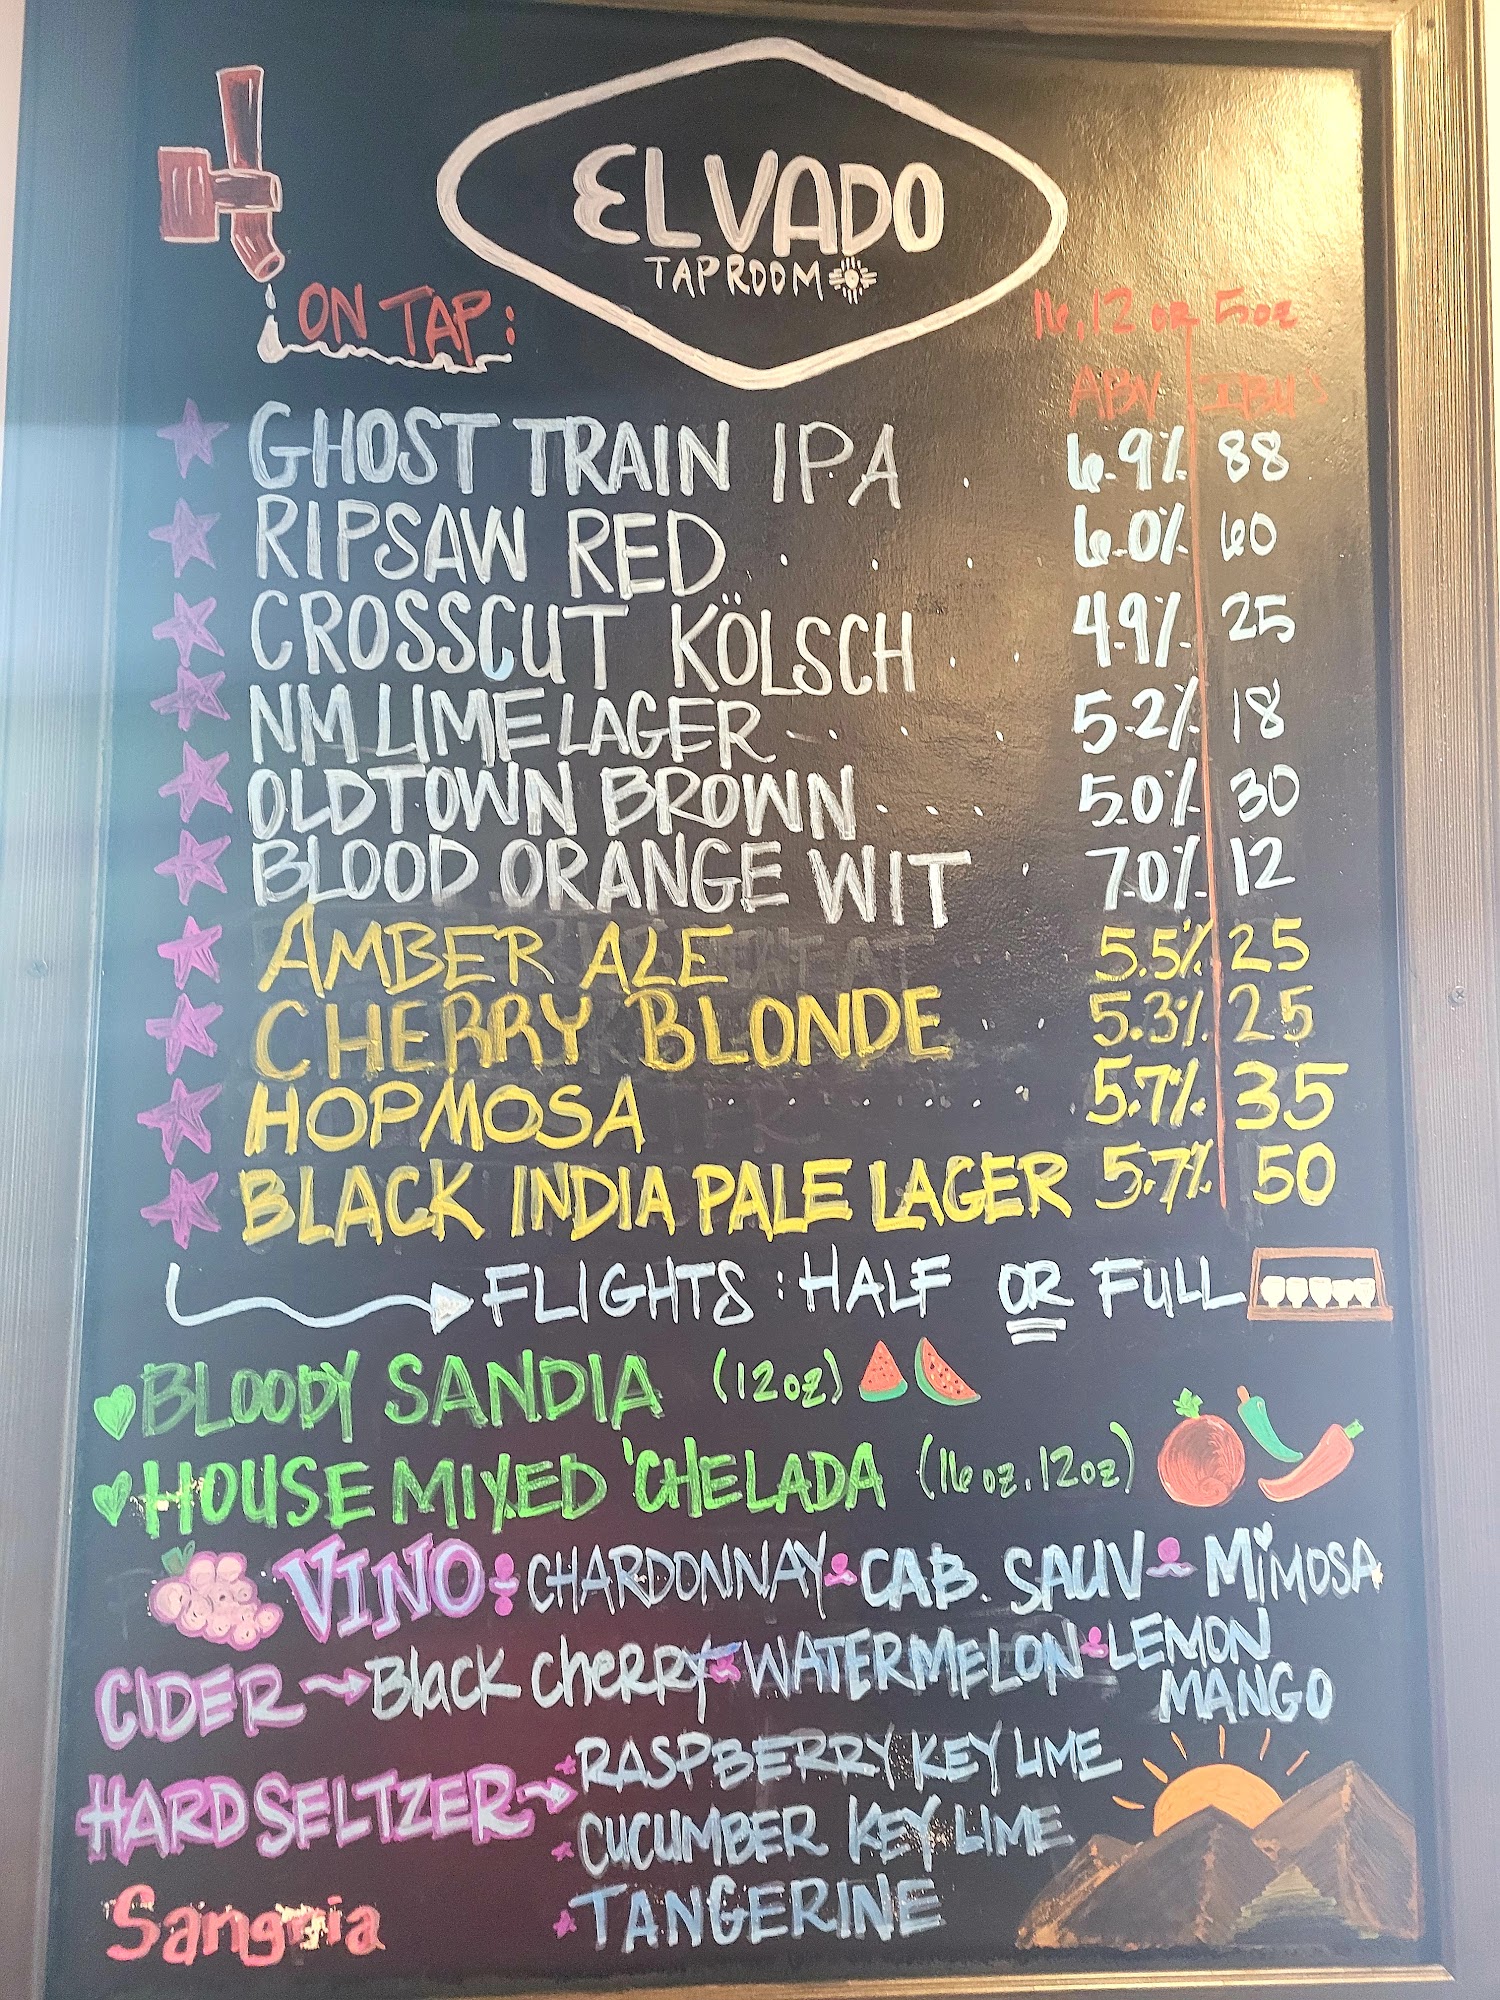 EL VADO
TAPROOM
ON TAP:
16, 12 OR 5oz
ABV IBU'S
GHOST TRAIN IPA . 6.9% 88
RIPSAW RED . . . . 6.0% 60
CROSSCUT KÖLSCH . . . 4.9% 25
NM LIME LAGER . . . . 5.2% 18
OLDTOWN BROWN . . . . 5.0% 30
BLOOD ORANGE WIT . . 7.0% 12
AMBER ALE 5.5% 25
CHERRY BLONDE . . . 5.3% 25
HOPMOSA . . . . . . . . 5.7% 35
BLACK INDIA PALE LAGER 5.7% 50
FLIGHTS: HALF OR FULL
BLOODY SANDIA (12oz)
HOUSE MIXED 'CHELADA (16oz, 12oz)
VINO: CHARDONNAY CAB. SAUV MIMOSA
CIDER Black CHERRY WATERMELON LEMON
MANGO
HARD SELTZER RASPBERRY KEY LIME
CUCUMBER KEY LIME
TANGERINE
Sangria